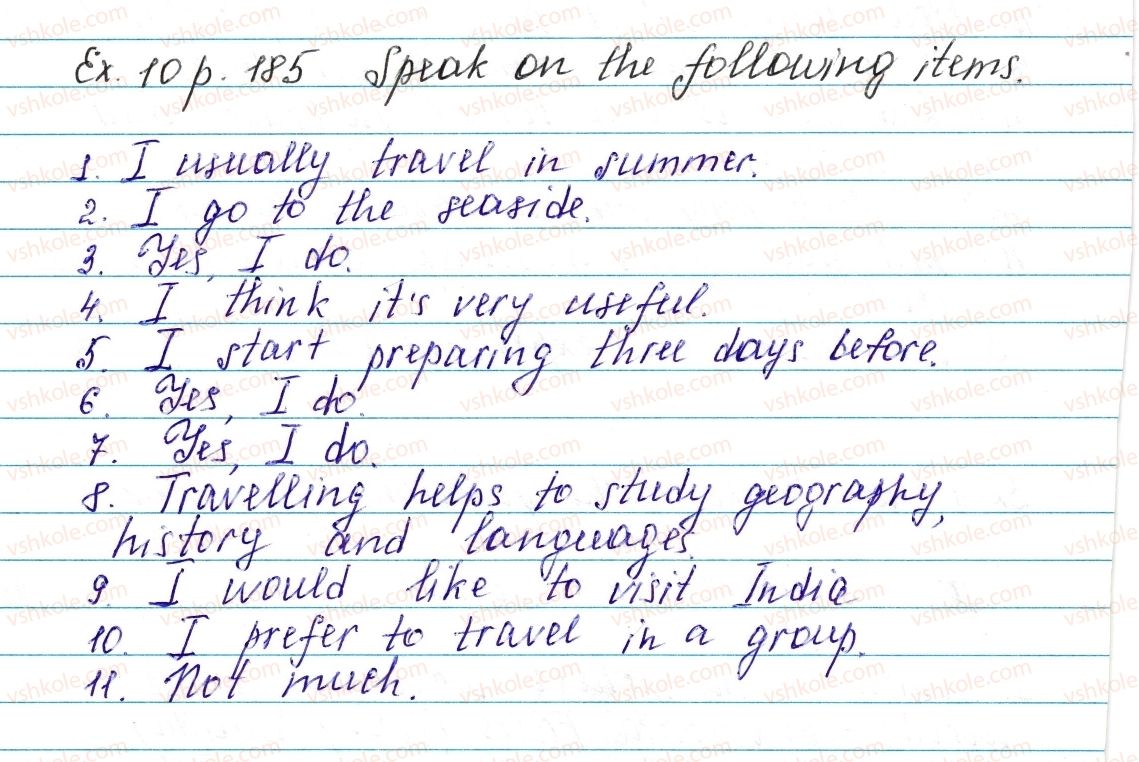 Ex. 10 p. 185 Speak on the following items.
1. I usually travel in summer.
2. I go to the seaside.
3. Yes, I do.
4. I think it's very useful.
5. I start preparing three days before.
6. Yes, I do.
7. Yes, I do.
8. Travelling helps to study geography,
history and languages.
9. I would like to visit India
10. I prefer to travel in a group.
11. Not much.
vshkole.com